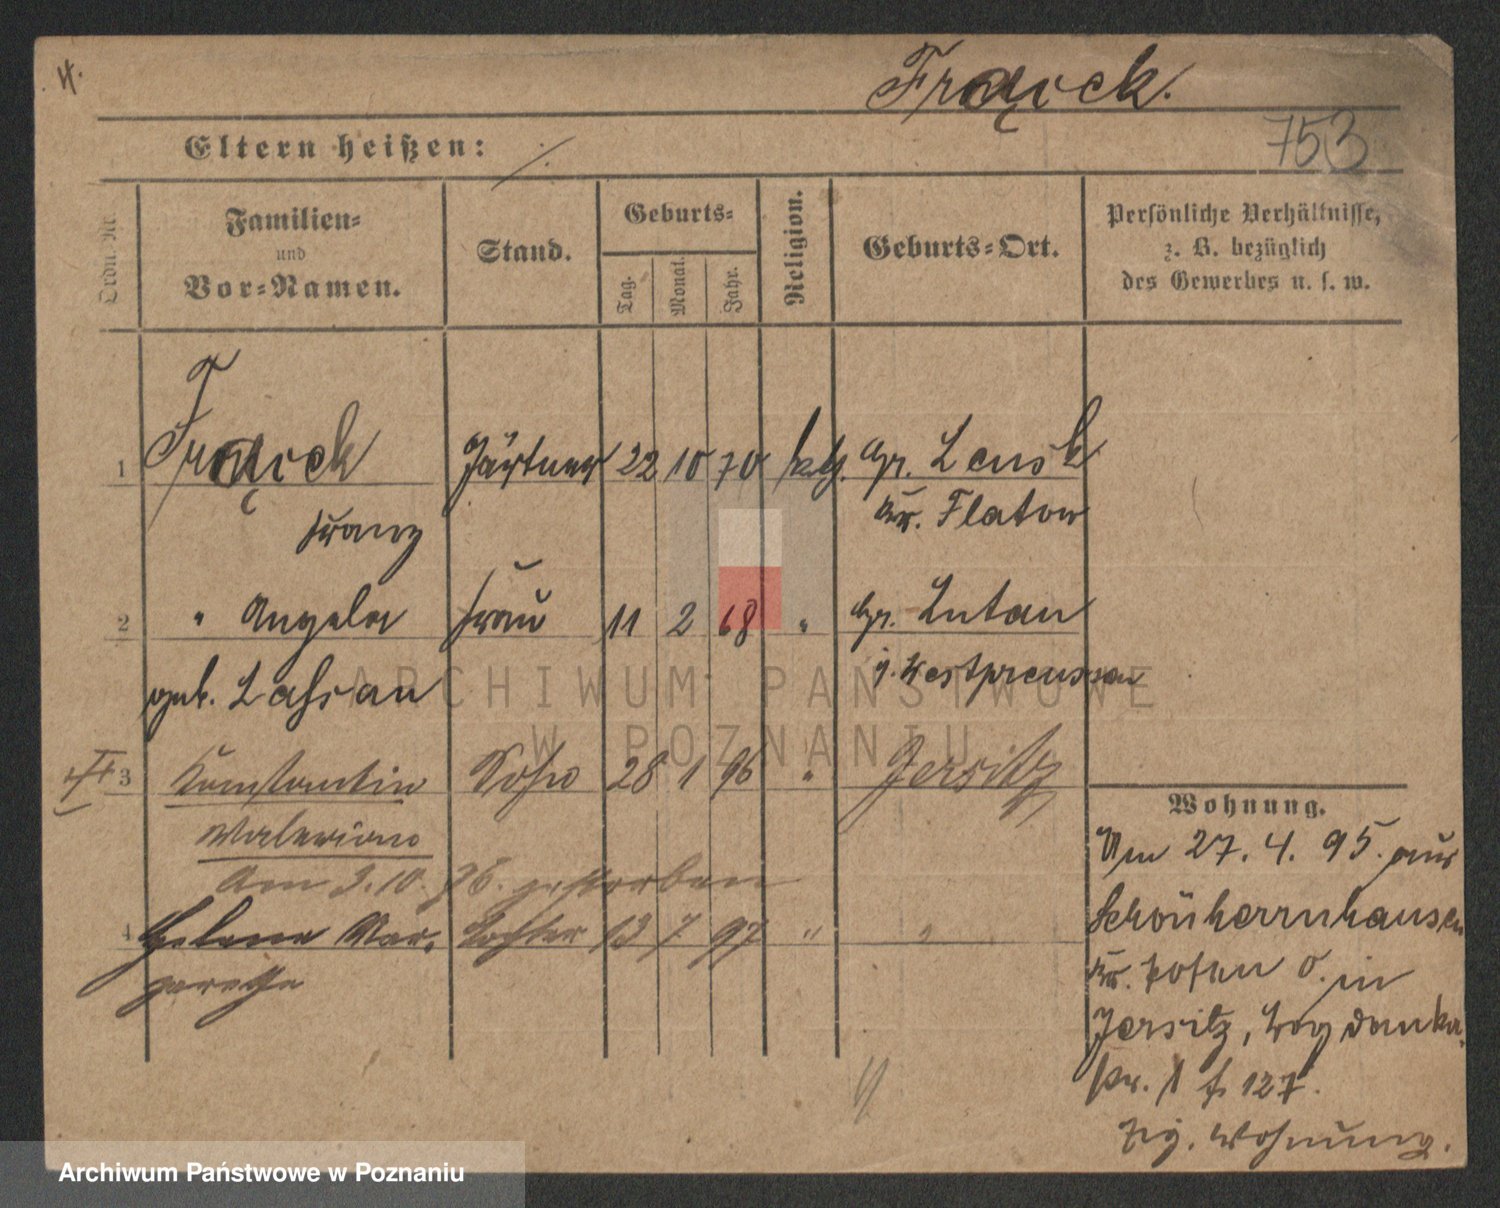 Frącek.
753
Eltern heißen: ./.
Ordn. Nr.
Familien-
und
Vor-Namen.
Stand.
Geburts-
Tag.
Monat.
Jahr.
Religion.
Geburts-Ort.
Persönliche Verhältnisse,
z. B. bezüglich
des Gewerbes u. s. w.
1 Gärtner 22 10 70 kth. Gr. Lensk
Franz Kr. Flatow
2 " Angela Frau 11 2 68 " Gr. Lutau
geb. i. Westpreussen
3 Konstantin Sohn 28 1 96 " Jersitz
Walerian
Am 3.10.96. gestorben
4 Helene Mar- Tochter 13 7 97 " "
garethe
Wohnung.
Am 27. 4. 95. aus
Schönherrnhausen
Kr. Posen O. in
Jersitz, Bogdanka
127.
Wohnung.
ARCHIWUM PAŃSTWOWE
W POZNANIU
Archiwum Państwowe w Poznaniu